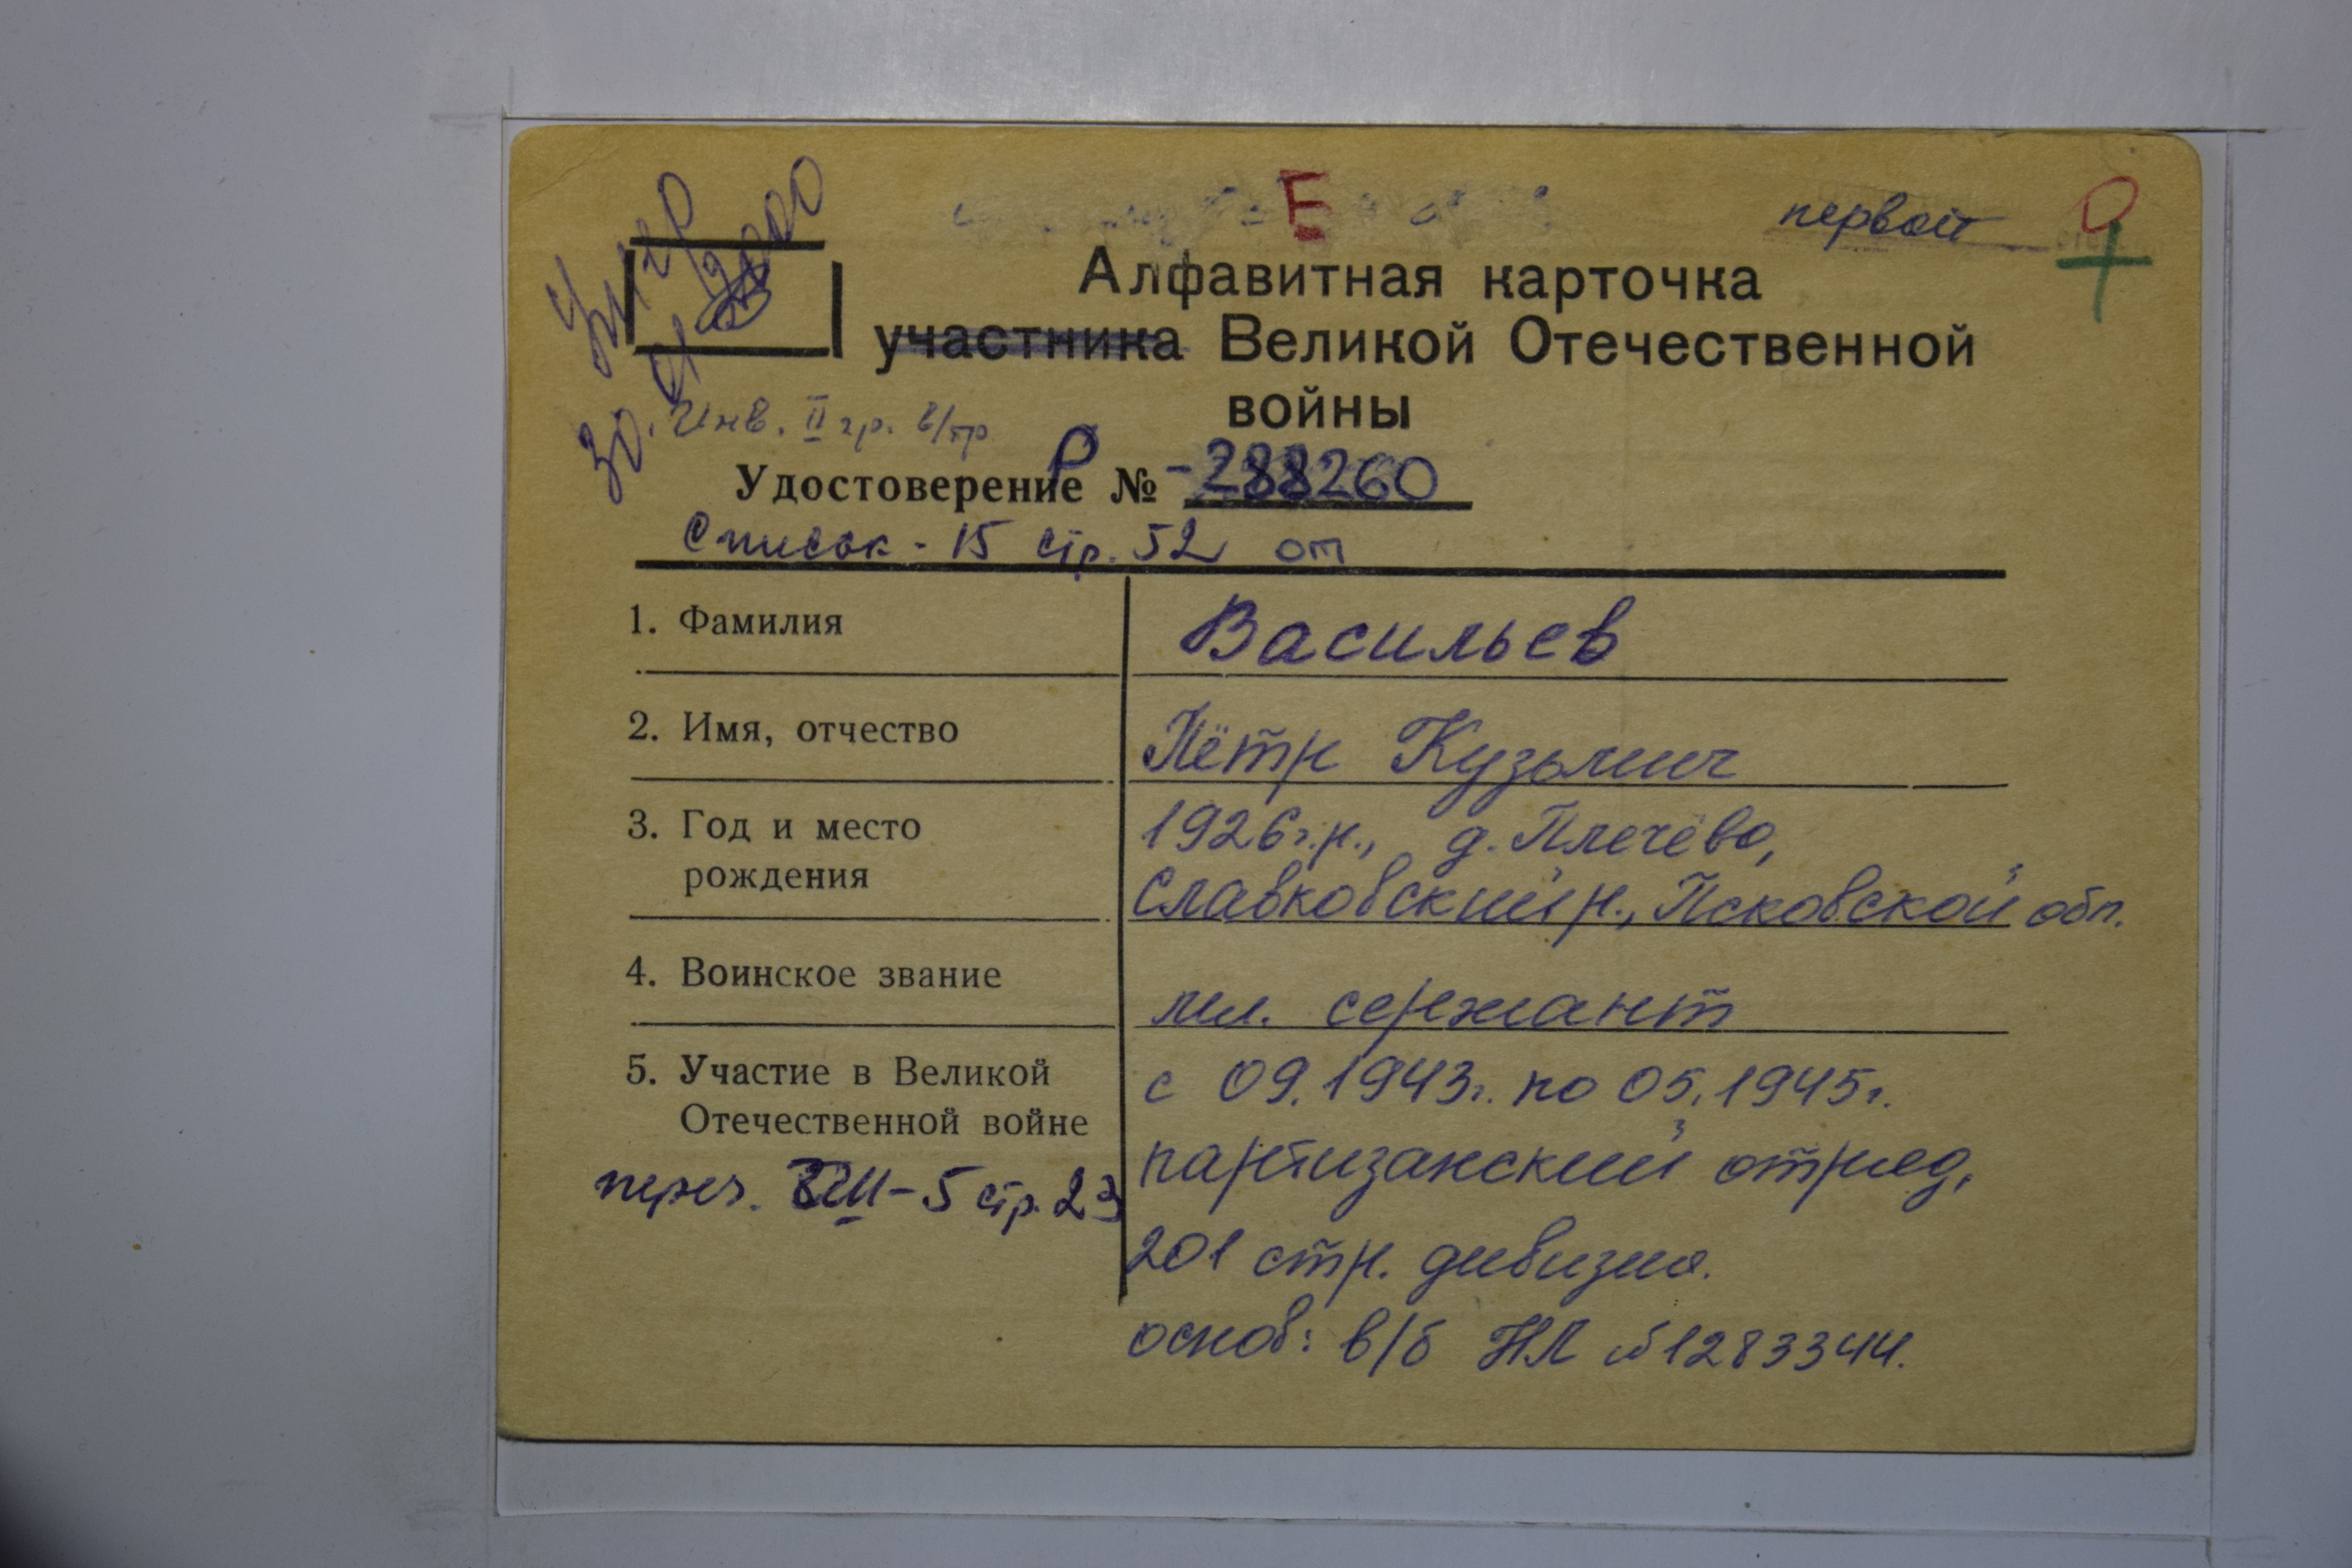 Е
первой
Умер
30.01.2000
Алфавитная карточка
участника Великой Отечественной
войны
Инв. II гр. в/тр
Удостоверение № Р-288260
Список - 15 стр. 52 от
1. Фамилия Васильев
2. Имя, отчество Пётр Кузьмич
3. Год и место 1926г.р., д. Плечёво,
рождения Славковский р., Псковской обл.
4. Воинское звание мл. сержант
5. Участие в Великой с 09.1943г. по 05.1945г.
Отечественной войне партизанский отряд,
переч. -5 стр. 23
201 стр. дивизия.
основ: в/б НЛ №1283344.